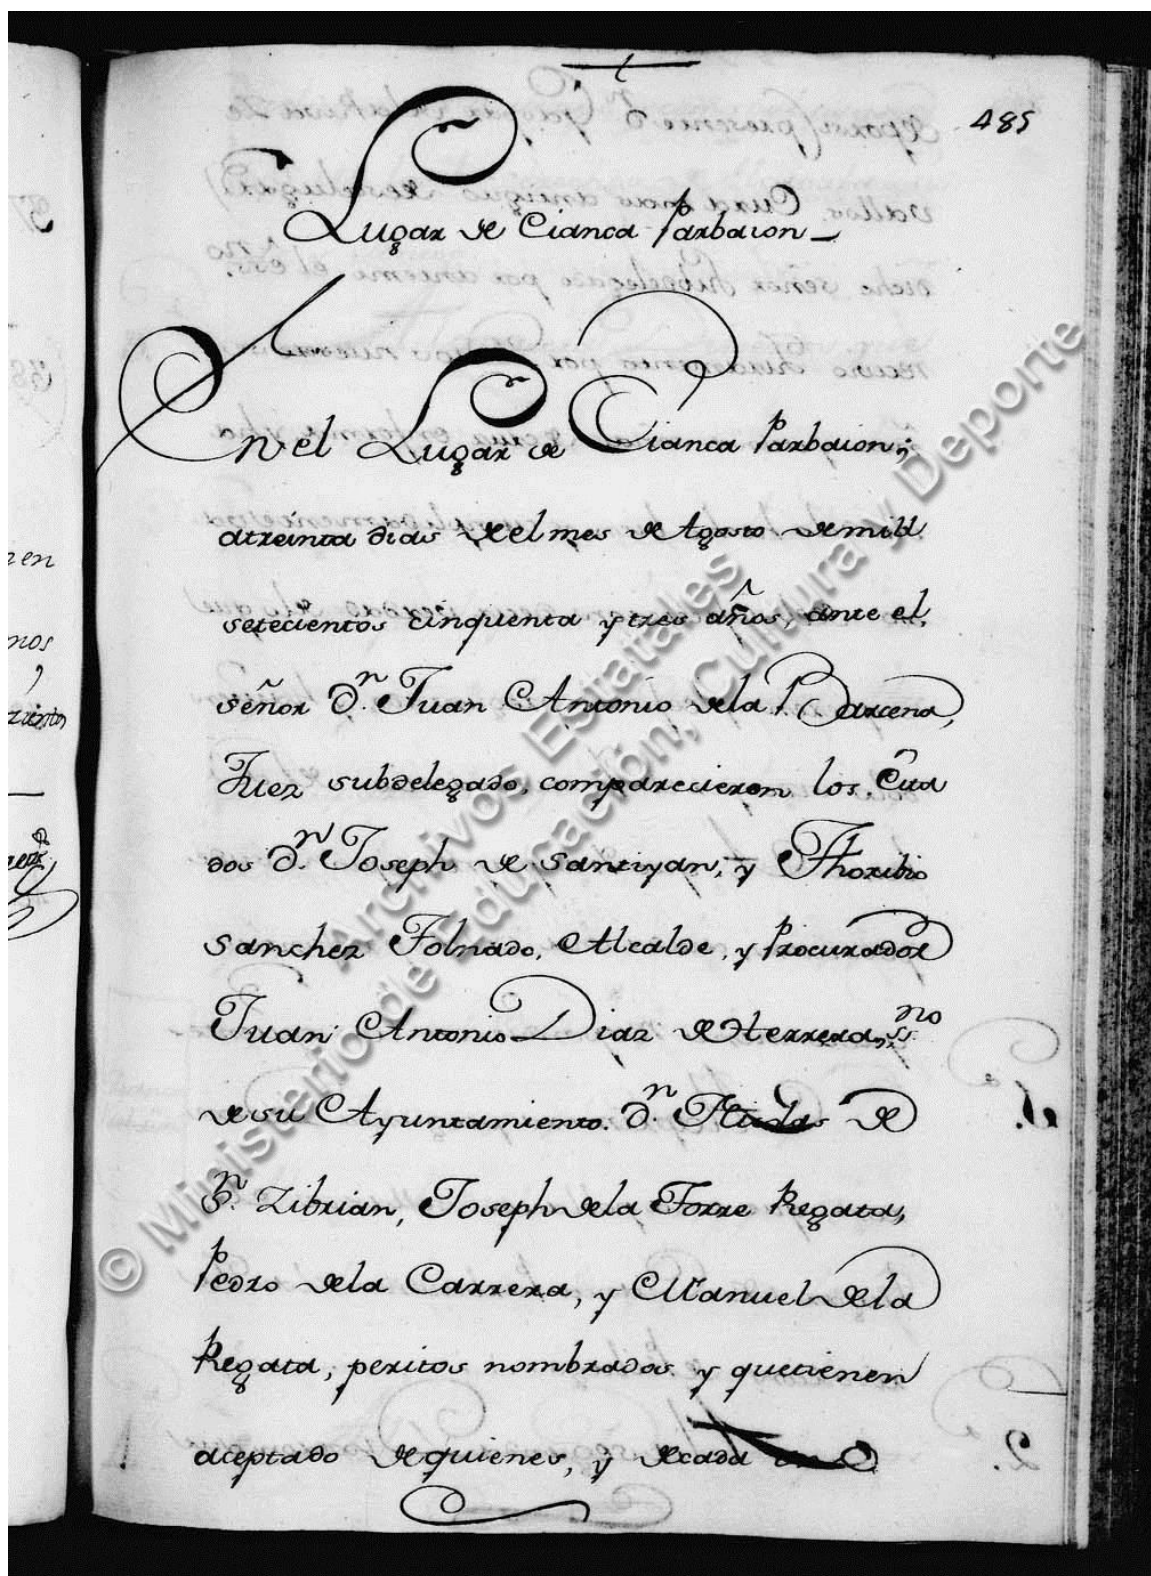 485
Lugar de Cianca Parbaion
En el Lugar de Cianca Parbaion;
atreinta dias de el mes de Agosto de mill
setecientos cinquenta y tres años, ante el,
señor Dn. Juan Antonio dela Barcena,
Juez subdelegado, comparecieron los, Cita
dos Dn. Joseph de Santiyan, y Thoribio
Sanchez Folnado, Alcalde, y Procurador
Juan Antonio Diaz de Herrera, ss.no
de su Ayuntamiento. Dn. de
Sn. Zibrian, Joseph dela Torre Regata,
Pedro dela Carrera, y Manuel dela
Regata, peritos nombrados y quetienen
aceptado dequienes, y decada uno
© Ministerio de Educación, Cultura y Deporte
Archivos Estatales